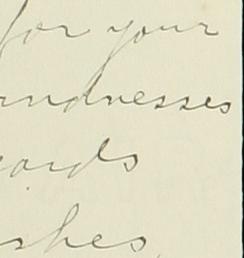 for your
indnesses
ords
shes,